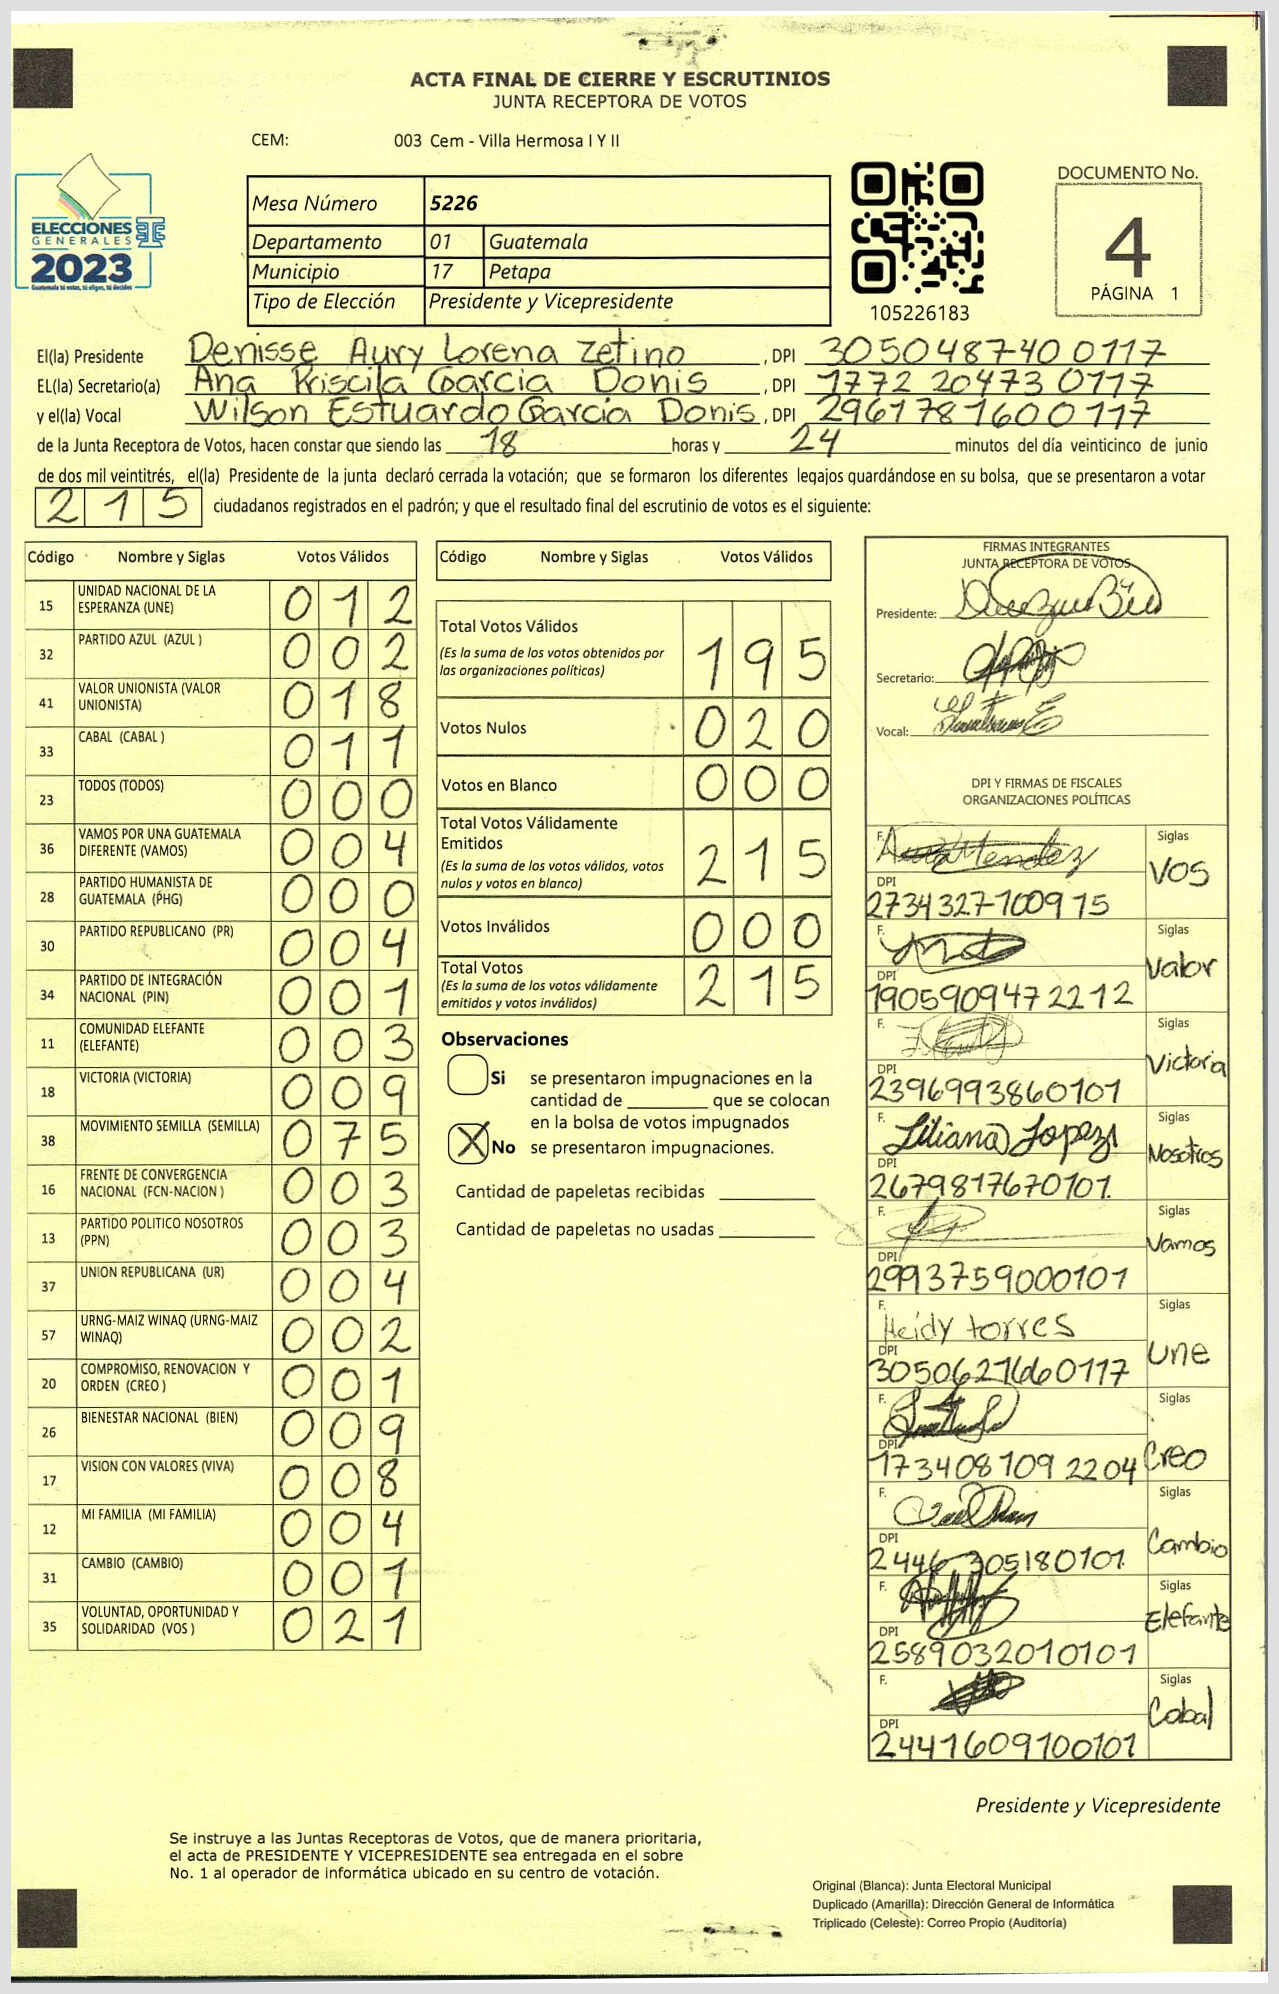 ACTA FINAL DE CIERRE Y ESCRUTINIOS
JUNTA RECEPTORA DE VOTOS
CEM: 003 Cem - Villa Hermosa I Y II
ELECCIONES
GENERALES
2023
Guatemala tú votas, tú eliges, tú decides
Mesa Número 5226
Departamento 01 Guatemala
Municipio 17 Petapa
Tipo de Elección Presidente y Vicepresidente
105226183
DOCUMENTO No.
4
PÁGINA 1
El(la) Presidente Denisse Aury Lorena Zetino, DPI 3050487400117
EL(la) Secretario(a) Ana Priscila Garcia Donis, DPI 1772 20473 0117
y el(la) Vocal Wilson Estuardo Garcia Donis, DPI 2961781600117
de la Junta Receptora de Votos, hacen constar que siendo las 18 horas y 24 minutos del día veinticinco de junio
de dos mil veintitrés, el(la) Presidente de la junta declaró cerrada la votación; que se formaron los diferentes legajos guardándose en su bolsa, que se presentaron a votar
215 ciudadanos registrados en el padrón; y que el resultado final del escrutinio de votos es el siguiente:
Código Nombre y Siglas Votos Válidos
15 UNIDAD NACIONAL DE LA ESPERANZA (UNE) 012
32 PARTIDO AZUL (AZUL ) 002
41 VALOR UNIONISTA (VALOR UNIONISTA) 018
33 CABAL (CABAL ) 011
23 TODOS (TODOS) 000
36 VAMOS POR UNA GUATEMALA DIFERENTE (VAMOS) 004
28 PARTIDO HUMANISTA DE GUATEMALA (PHG) 000
30 PARTIDO REPUBLICANO (PR) 004
34 PARTIDO DE INTEGRACIÓN NACIONAL (PIN) 001
11 COMUNIDAD ELEFANTE (ELEFANTE) 003
18 VICTORIA (VICTORIA) 009
38 MOVIMIENTO SEMILLA (SEMILLA) 075
16 FRENTE DE CONVERGENCIA NACIONAL (FCN-NACION ) 003
13 PARTIDO POLITICO NOSOTROS (PPN) 003
37 UNION REPUBLICANA (UR) 004
57 URNG-MAIZ WINAQ (URNG-MAIZ WINAQ) 002
20 COMPROMISO, RENOVACION Y ORDEN (CREO ) 001
26 BIENESTAR NACIONAL (BIEN) 009
17 VISION CON VALORES (VIVA) 008
12 MI FAMILIA (MI FAMILIA) 004
31 CAMBIO (CAMBIO) 001
35 VOLUNTAD, OPORTUNIDAD Y SOLIDARIDAD (VOS ) 021
Código Nombre y Siglas Votos Válidos
Total Votos Válidos 195
(Es la suma de los votos obtenidos por
las organizaciones políticas)
Votos Nulos 020
Votos en Blanco 000
Total Votos Válidamente
Emitidos 215
(Es la suma de los votos válidos, votos
nulos y votos en blanco)
Votos Inválidos 000
Total Votos 215
(Es la suma de los votos válidamente
emitidos y votos inválidos)
Observaciones
Si se presentaron impugnaciones en la
cantidad de ________ que se colocan
en la bolsa de votos impugnados
X No se presentaron impugnaciones.
Cantidad de papeletas recibidas
Cantidad de papeletas no usadas
FIRMAS INTEGRANTES
JUNTA RECEPTORA DE VOTOS
Presidente:
Secretario:
Vocal:
DPI Y FIRMAS DE FISCALES
ORGANIZACIONES POLÍTICAS
F. Mendez Siglas VOS
DPI 2734327100915
F. Siglas Valor
DPI 1905909472212
F. Siglas Victoria
DPI 2396993860101
F. Liliana Lopez Siglas Nosotros
DPI 2679817670101
F. Siglas Vamos
DPI 2993759000101
F. Heidy torres Siglas Une
DPI 3050621660117
F. Siglas Creo
DPI 173408109 2204
F. Siglas Cambio
DPI 2446 305180101
F. Siglas Elefante
DPI 2589032010101
F. Siglas Cabal
DPI 2441609100101
Presidente y Vicepresidente
Se instruye a las Juntas Receptoras de Votos, que de manera prioritaria,
el acta de PRESIDENTE Y VICEPRESIDENTE sea entregada en el sobre
No. 1 al operador de informática ubicado en su centro de votación.
Original (Blanca): Junta Electoral Municipal
Duplicado (Amarilla): Dirección General de Informática
Triplicado (Celeste): Correo Propio (Auditoría)